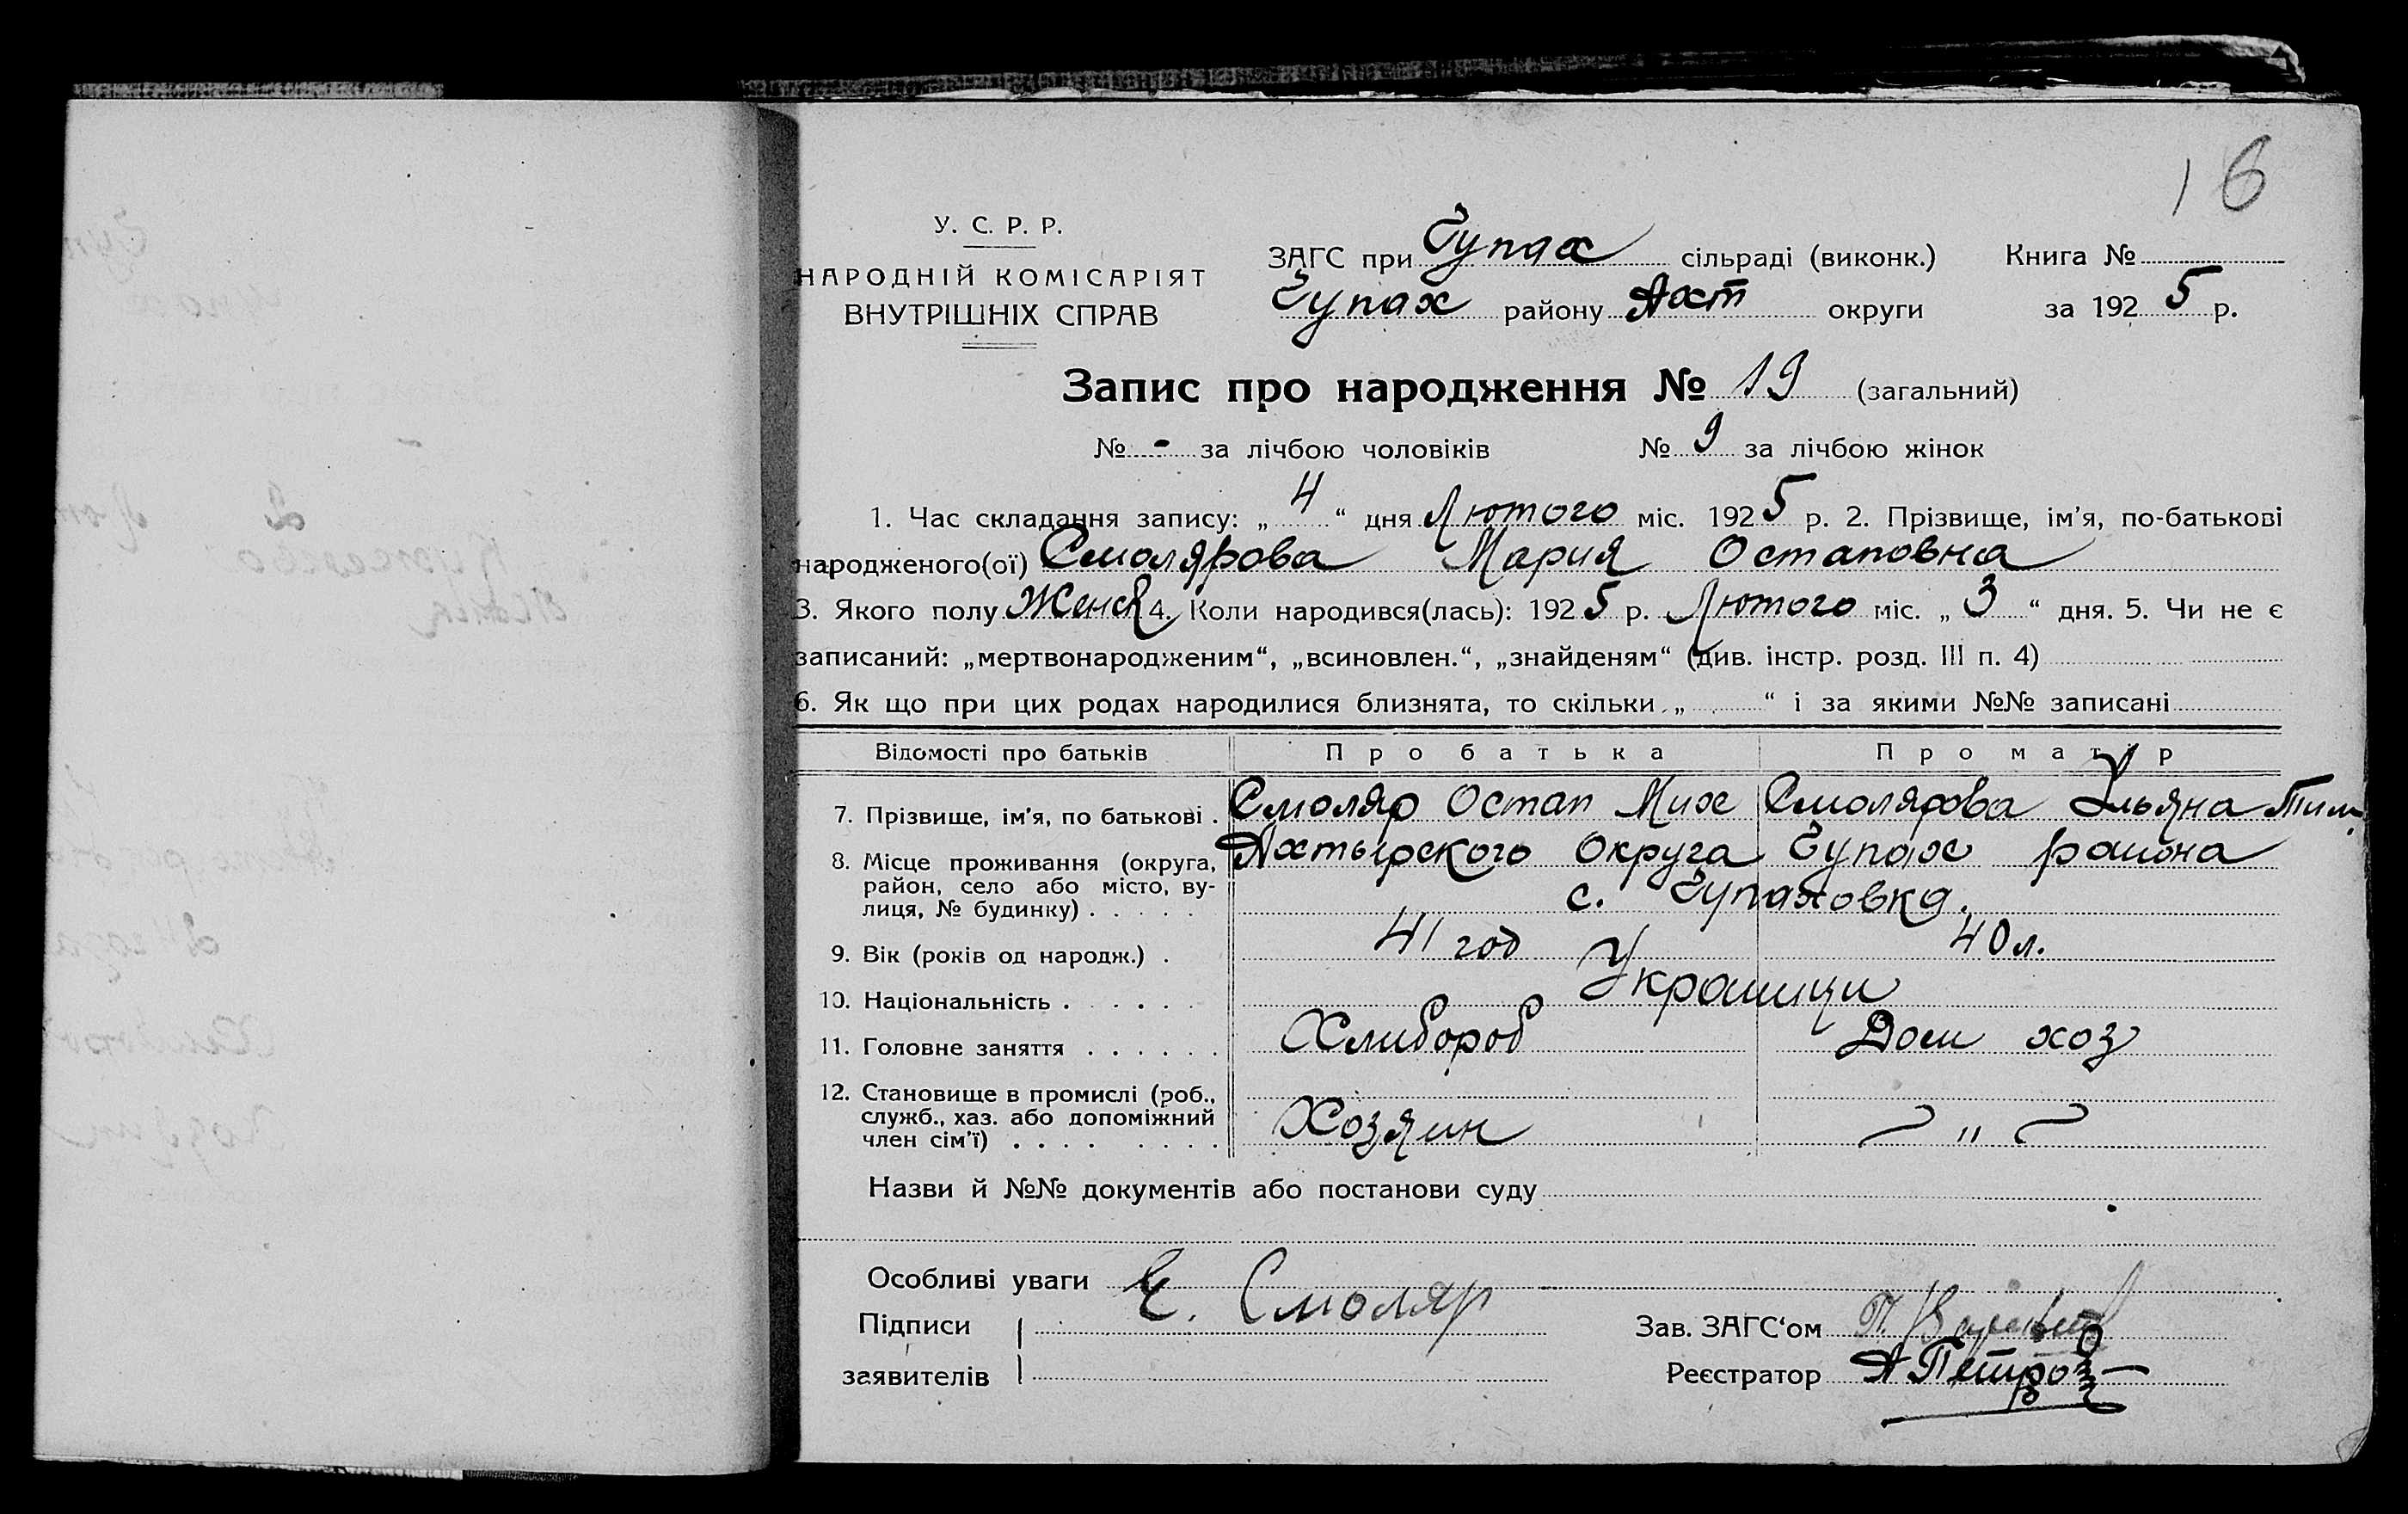 16
У. С. Р. Р.
НАРОДНІЙ КОМІСАРІЯТ
ВНУТРІШНІХ СПРАВ
ЗАГС при Чупах сільраді (виконк.) Книга №
Чупах району Ахт округи за 1925 р.
Запис про народження № 19 (загальний)
№ - за лічбою чоловіків № 9 за лічбою жінок
1. Час складання запису: „ 4 “ дня Лютого міс. 1925 р. 2. Прізвище, ім’я, по-батькові
народженого(ої) Смолярова Мария Остаповна
3. Якого полу Женск 4. Коли народився(лась): 1925 р. Лютого міс. „ 3 “ дня. 5. Чи не є
записаний: „мертвонародженим“, „всиновлен.“, „знайденям“ (див. інстр. розд. III п. 4)
6. Як що при цих родах народилися близнята, то скільки „ “ і за якими №№ записані
Відомості про батьків Про батька Про матір
7. Прізвище, ім’я, по батькові . Смоляр Остап Мих Смолярова Ульяна Тим.
8. Місце проживання (округа, Ахтырского Округа Чупах района
район, село або місто, ву-
лиця, № будинку) . . . . . с. Чупаховка.
9. Вік (років од народж.) . 41 год 40 л.
10. Національність . . . . . Украинци
11. Головне заняття . . . . . . Хлибороб Дом хоз
12. Становище в промислі (роб.,
служб., хаз. або допоміжний
член сім’ї) . . . . . . . . Хозяин — „ —
Назви й №№ документів або постанови суду
Особливі уваги
Підписи Е. Смоляр Зав. ЗАГС‘ом П.
заявителів Реєстратор А Петров